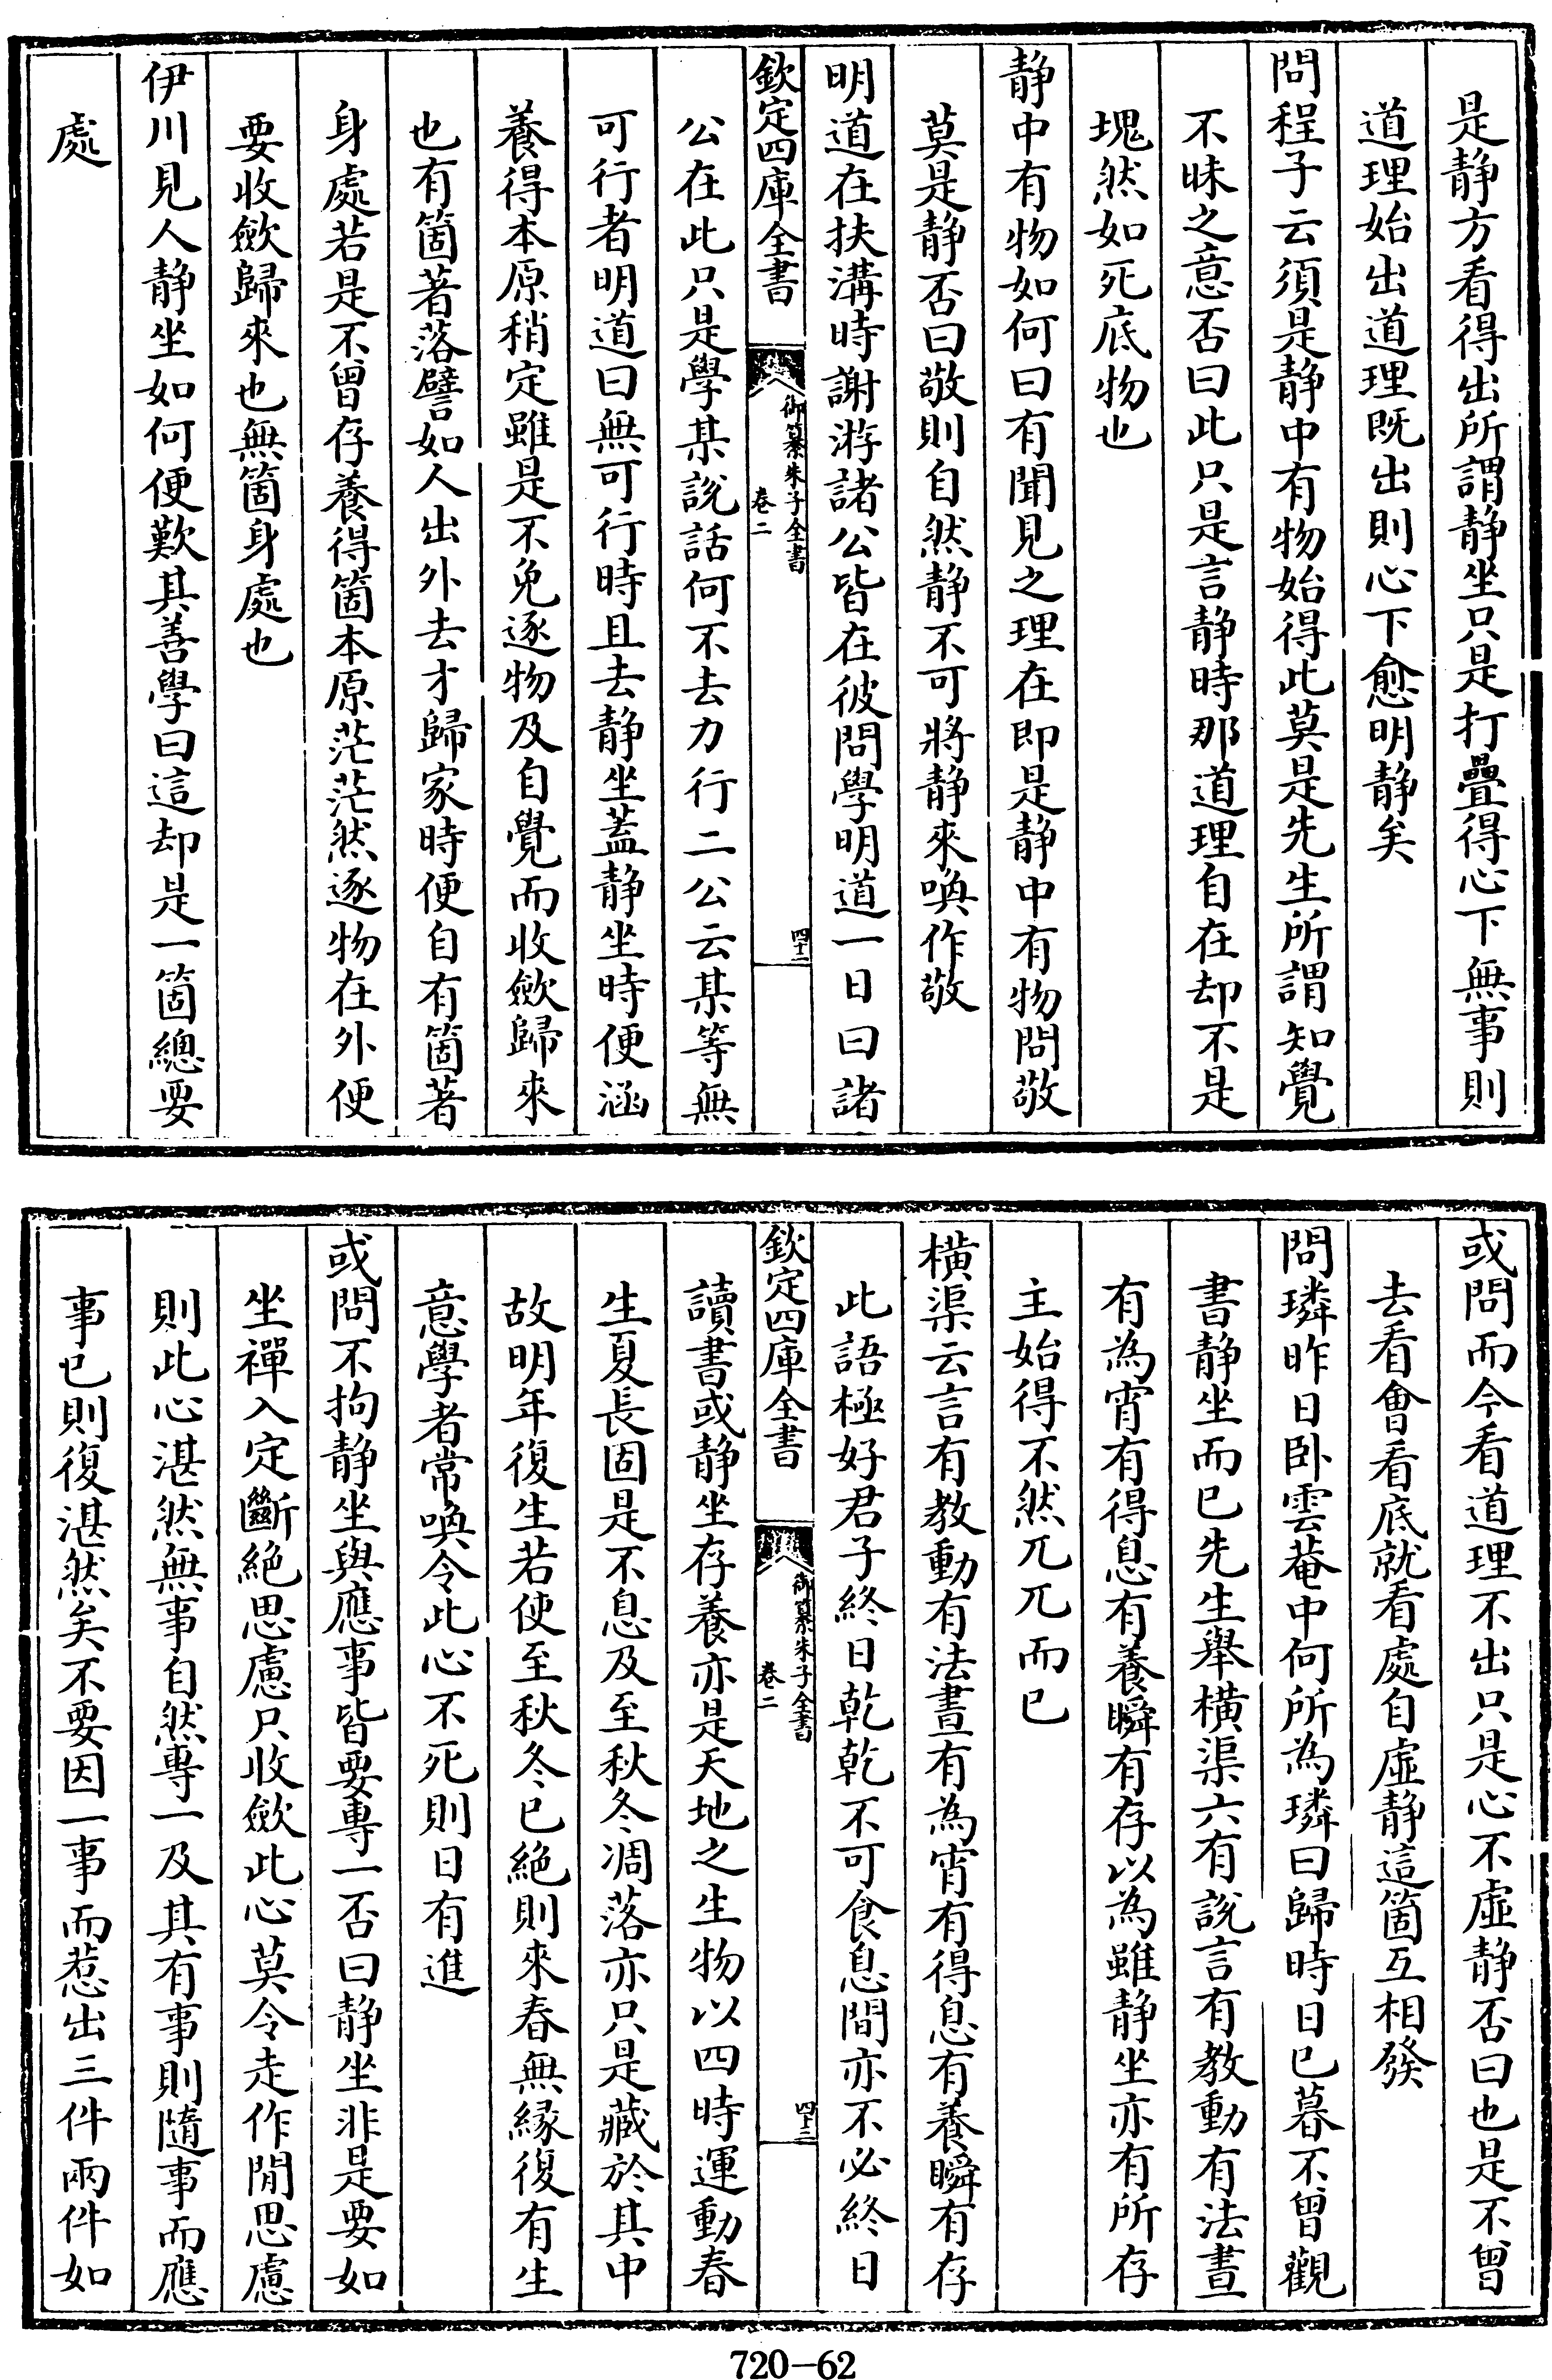 是静方看得出所謂静坐只是打疊得心下無事則
道理始出道理既出則心下愈明静矣
問程子云須是静中有物始得此莫是先生所謂知覺
不昧之意否曰此只是言静時那道理自在却不是
塊然如死底物也
静中有物如何曰有聞見之理在即是静中有物問敬
莫是静否曰敬則自然静不可將静來喚作敬
明道在扶溝時謝游諸公皆在彼問學明道一日曰諸
欽定四庫全書 御纂朱子全書 卷二 四十二
公在此只是學某說話何不去力行二公云某等無
可行者明道曰無可行時且去静坐蓋静坐時便涵
養得本原稍定雖是不免逐物及自覺而收斂歸來
也有箇著落譬如人出外去才歸家時便自有箇著
身處若是不曾存養得箇本原茫茫然逐物在外便
要收斂歸來也無箇身處也
伊川見人静坐如何便歎其善學曰這却是一箇總要
處
或問而今看道理不出只是心不虛静否曰也是不曾
去看會看底就看處自虛静這箇互相發
問璘昨日卧雲菴中何所為璘曰歸時日已暮不曾觀
書静坐而已先生舉橫渠六有說言有教動有法晝
有為宵有得息有養瞬有存以為雖静坐亦有所存
主始得不然兀兀而已
橫渠云言有教動有法晝有為宵有得息有養瞬有存
此語極好君子終日乾乾不可食息間亦不必終日
欽定四庫全書 御纂朱子全書 卷二 四十三
讀書或静坐存養亦是天地之生物以四時運動春
生夏長固是不息及至秋冬凋落亦只是藏於其中
故明年復生若使至秋冬已絶則來春無緣復有生
意學者常喚令此心不死則日有進
或問不拘静坐與應事皆要專一否曰静坐非是要如
坐禪入定斷絶思慮只收斂此心莫令走作閒思慮
則此心湛然無事自然專一及其有事則隨事而應
事已則復湛然矣不要因一事而惹出三件兩件如
720-62